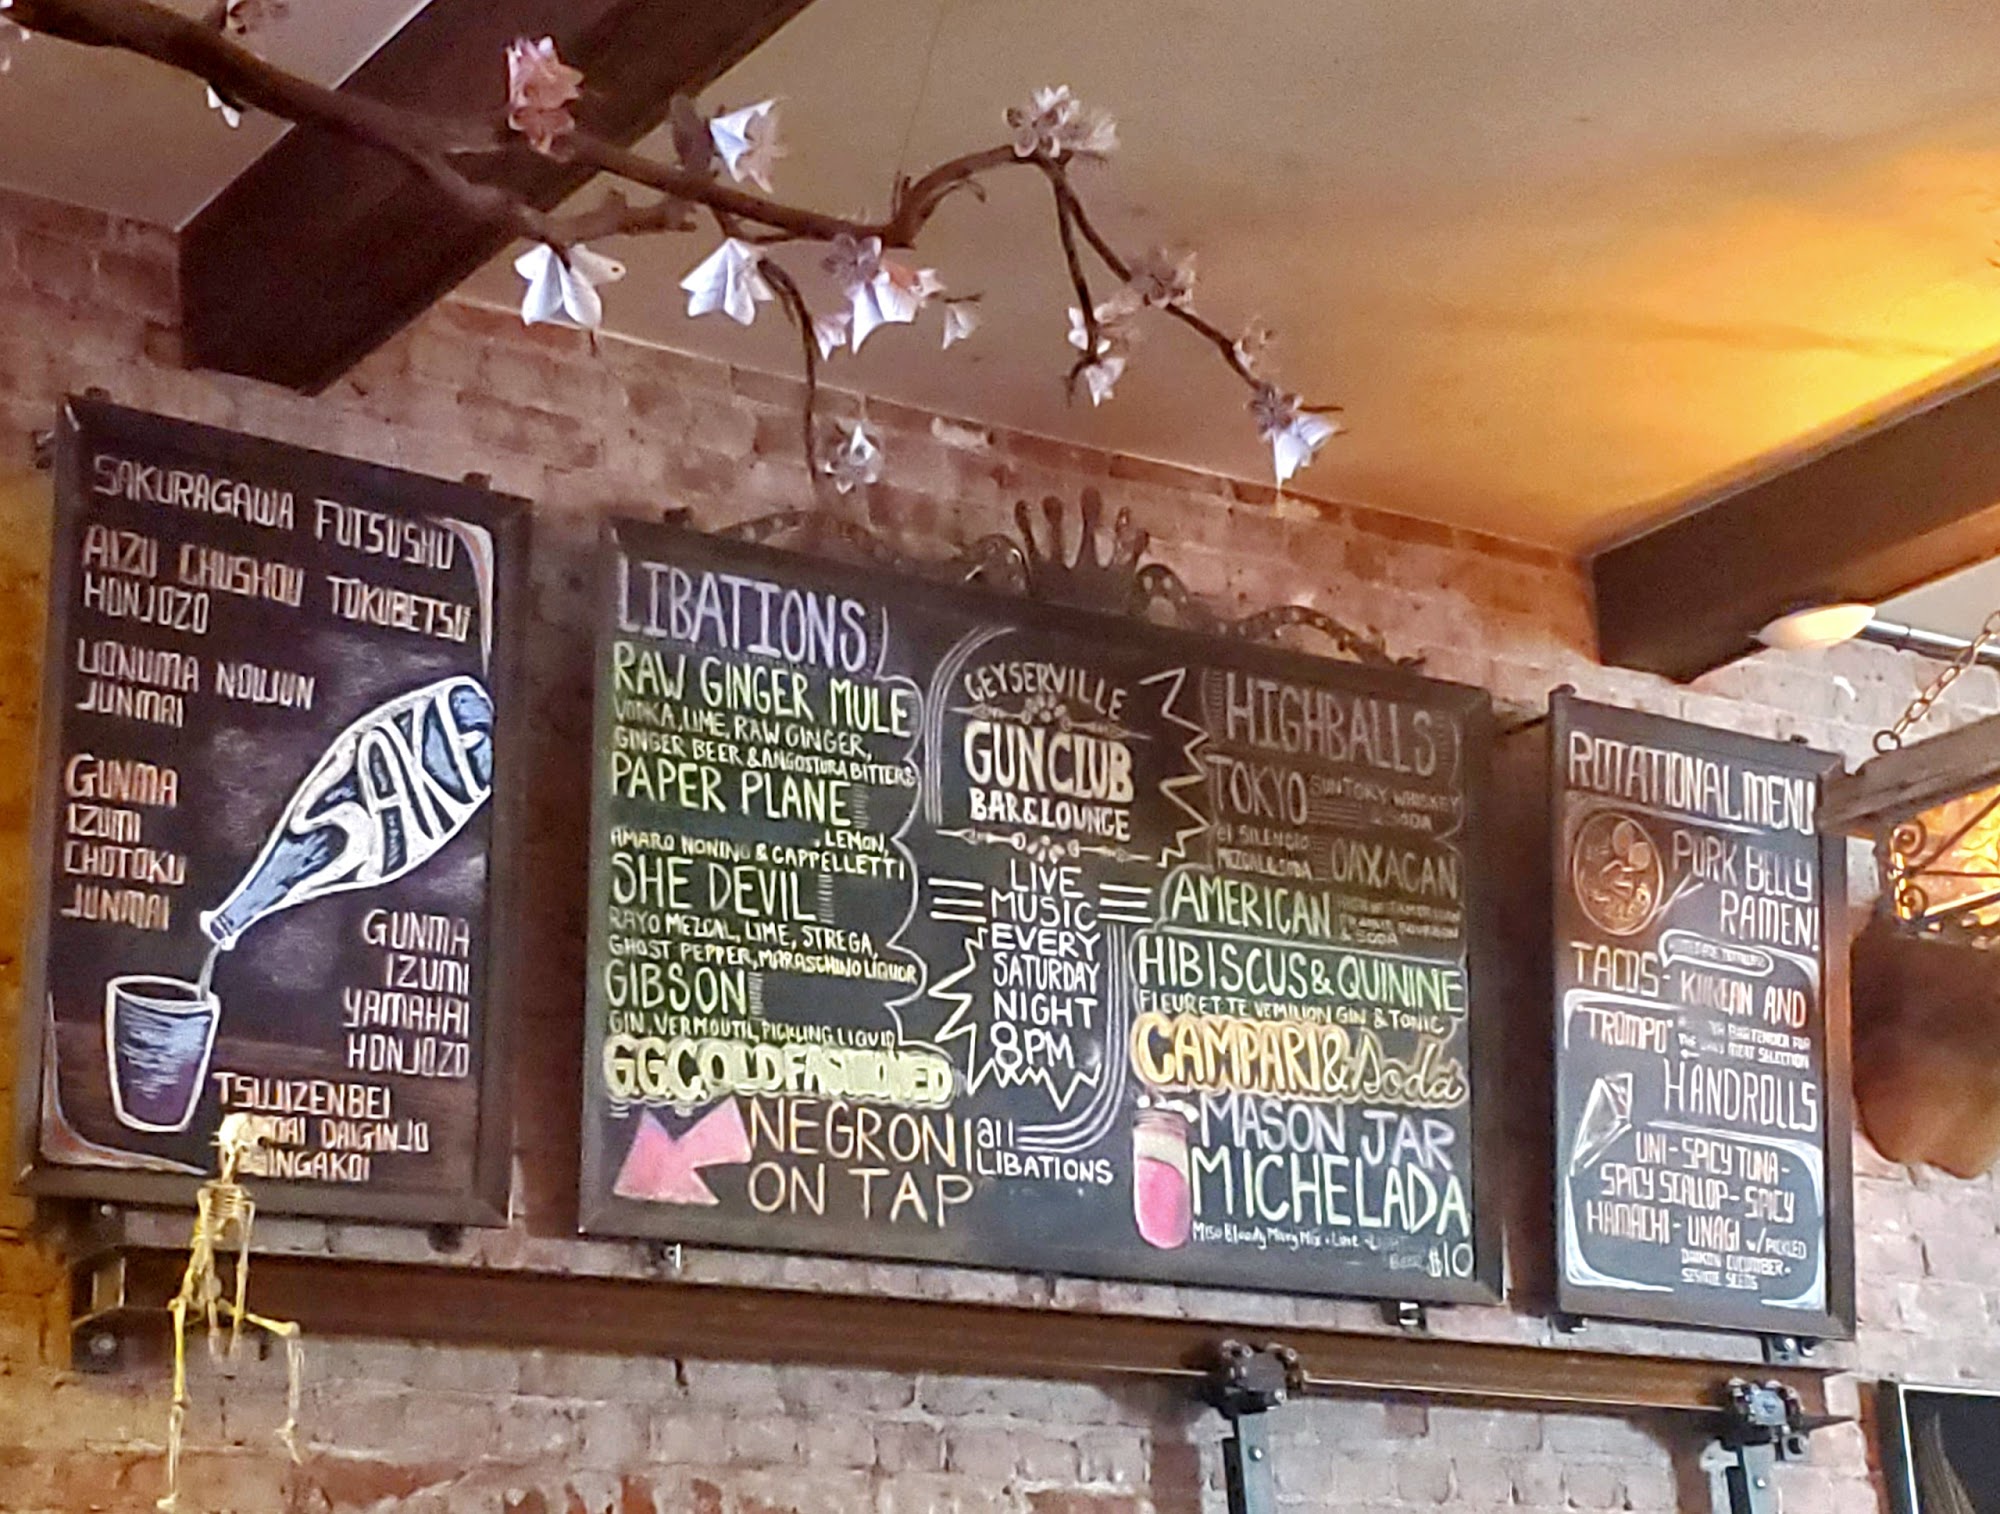 SAKURAGAWA FUTSUSHU
AIZU CHUSHOU TOKUBETSU
HONJOZO
UONUMA NOUJUN
JUNMAI
SAKE
GUNMA
IZUMI
CHOTOKU
JUNMAI
GUNMA
IZUMI
YAMAHAI
HONJOZO
TSUJIZENBEI
DAIGINJO
LIBATIONS
RAW GINGER MULE
VODKA, LIME, RAW GINGER,
GINGER BEER & ANGOSTURA BITTERS
PAPER PLANE
LEMON,
AMARO NONINO & CAPPELLETTI
SHE DEVIL
RAYO MEZCAL, LIME, STREGA,
GHOST PEPPER, MARASCHINO LIQUOR
GIBSON
GIN, VERMOUTH, PICKLING LIQUID
G.G.C. OLD FASHIONED
NEGRONI
ON TAP
GEYSERVILLE
GUN CLUB
BAR & LOUNGE
LIVE
MUSIC
EVERY
SATURDAY
NIGHT
8PM
all
LIBATIONS
HIGHBALLS
TOKYO SUNTORY WHISKEY
& SODA
el SILENCIO
MEZCAL & SODA OAXACAN
AMERICAN
BOURBON
& SODA
HIBISCUS & QUININE
FLEURETTE VERMILION GIN & TONIC
CAMPARI & Soda
MASON JAR
MICHELADA
Miso Bloody Mary Mix - Lime -
Beer $10
ROTATIONAL MENU
PORK BELLY
RAMEN!
TACOS - KOREAN AND
"TROMPO" BARTENDER FOR
MEAT SELECTION
HANDROLLS
UNI - SPICY TUNA -
SPICY SCALLOP - SPICY
HAMACHI - UNAGI w/ PICKLED
DAIKON CUCUMBER +
SESAME SEEDS